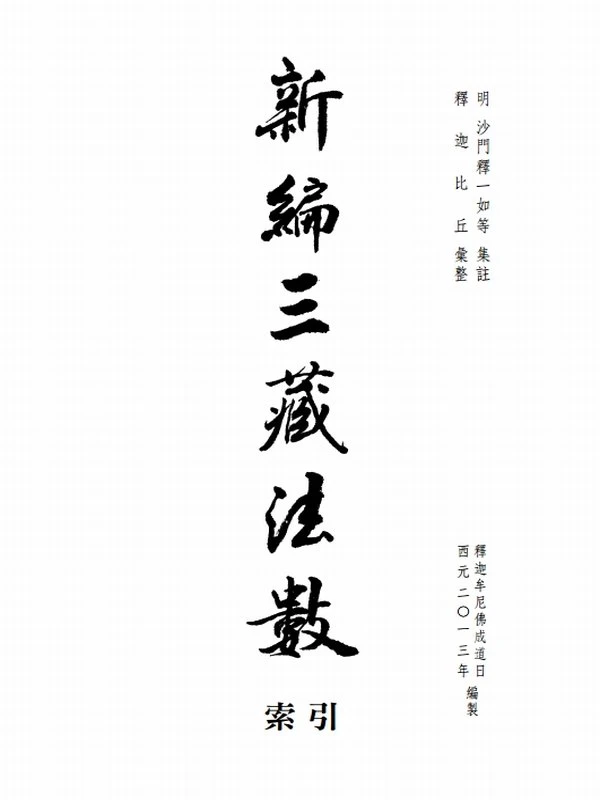 明 沙門釋一如等 集註
釋迦比丘 彙整
新編三藏法數
索引
釋迦牟尼佛成道日
西元二〇一三年
編製